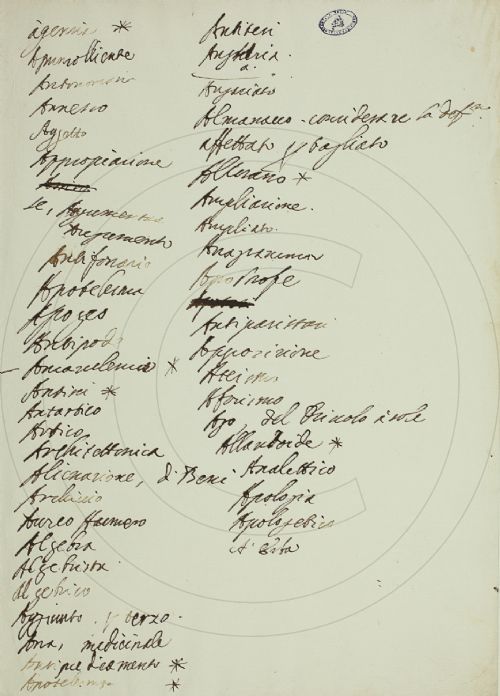 agenzia *
Ammolliente
Antonomasi
Annesso
Aggetto
Appropiazione
se, Argumentus
Argumento
Antifonario
Apotelesma
Apogeo
Antipod
*
Antini *
Antartico
Artico
Architettonica
Alienazione, di Beni
Archivio
Aureo Numero
Algebra
Algebrista
Algebrico
Aggiunto. p verzo.
Ana, medicinale
Antipredicamento *
Apotelesma *
Antiteri
Angheria.
Angariato
Almanacco - considerare la def.ne
affettato p sbagliato
Alterano *
Ampliazione.
Ampliato.
Anagramma
Apostrofe
Antiparistasi
Apposizione
Ateismo
Aforismo
Apo, del Circolo
Allantoide *
Analettico
Apologia
Apologetico